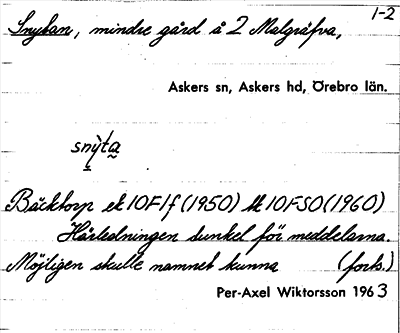 1-2
Snytan, mindre gård å 2 Malgräfva,
Askers sn, Askers hd, Örebro län.
snỳta̰
Bäcktorp ek 10F1f (1950) tk 10FSO (1960)
Härledningen dunkel för meddelarna.
Möjligen skulle namnet kunna (forts.)
Per-Axel Wiktorsson 1963